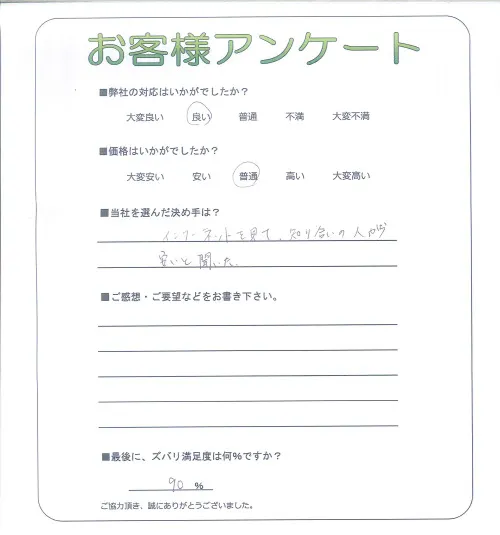 お客様アンケート
■弊社の対応はいかがでしたか？
大変良い 良い 普通 不満 大変不満
■価格はいかがでしたか？
大変安い 安い 普通 高い 大変高い
■当社を選んだ決め手は？
インターネットを見て、知り合いの人から
安いと聞いた。
■ご感想・ご要望などをお書き下さい。
■最後に、ズバリ満足度は何%ですか？
90 %
ご協力頂き、誠にありがとうございました。